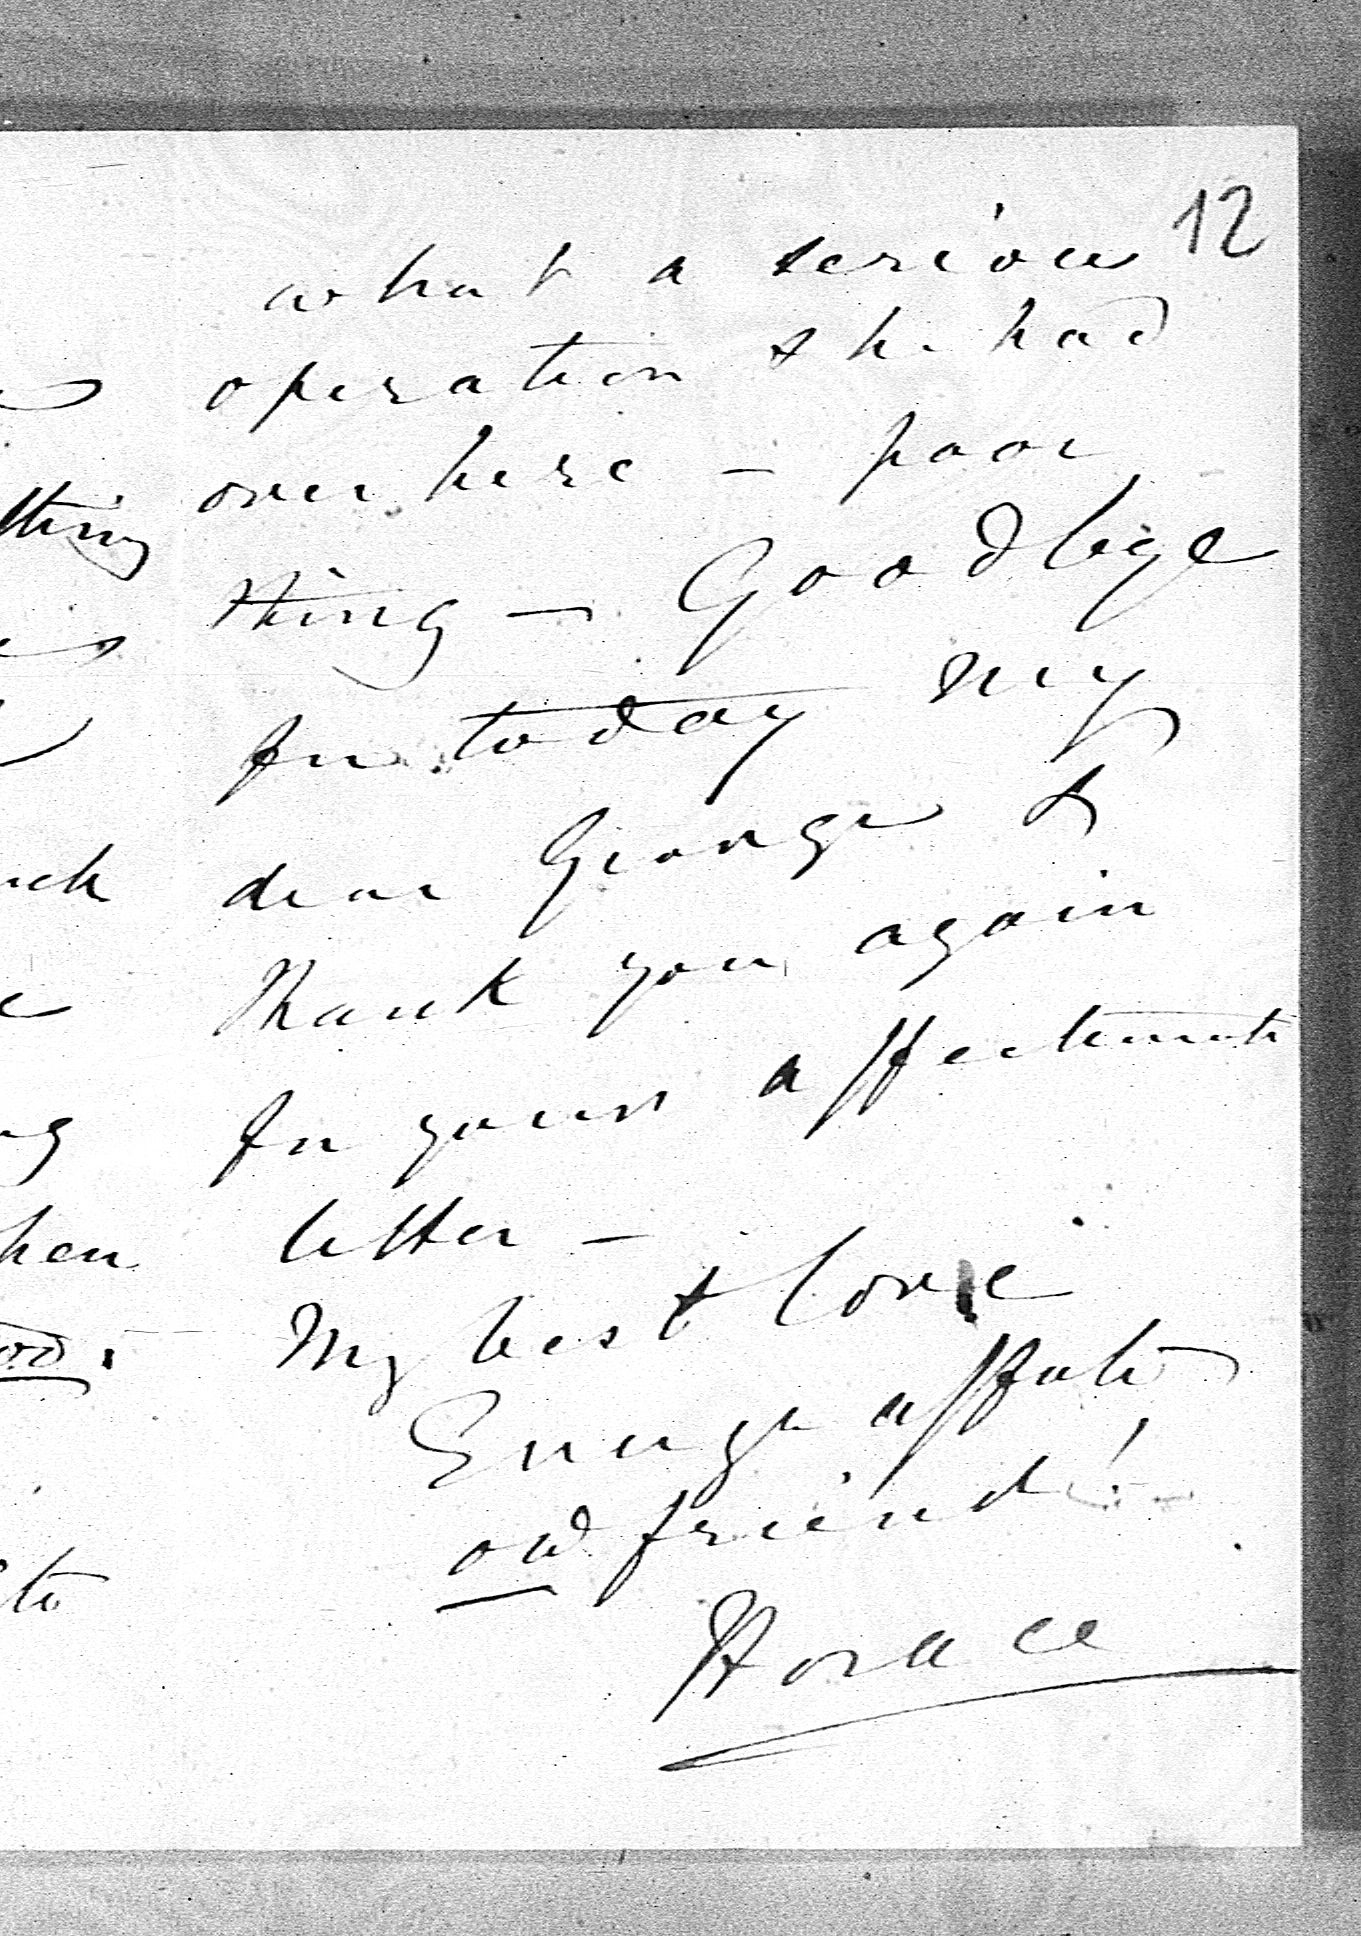 12
what a serious
operation she had
over here — poor
thing — Goodbye
for today my
dear George &
thank you again
for your affectionate
letter —
My best love
affate
old friend!
Horace
thing